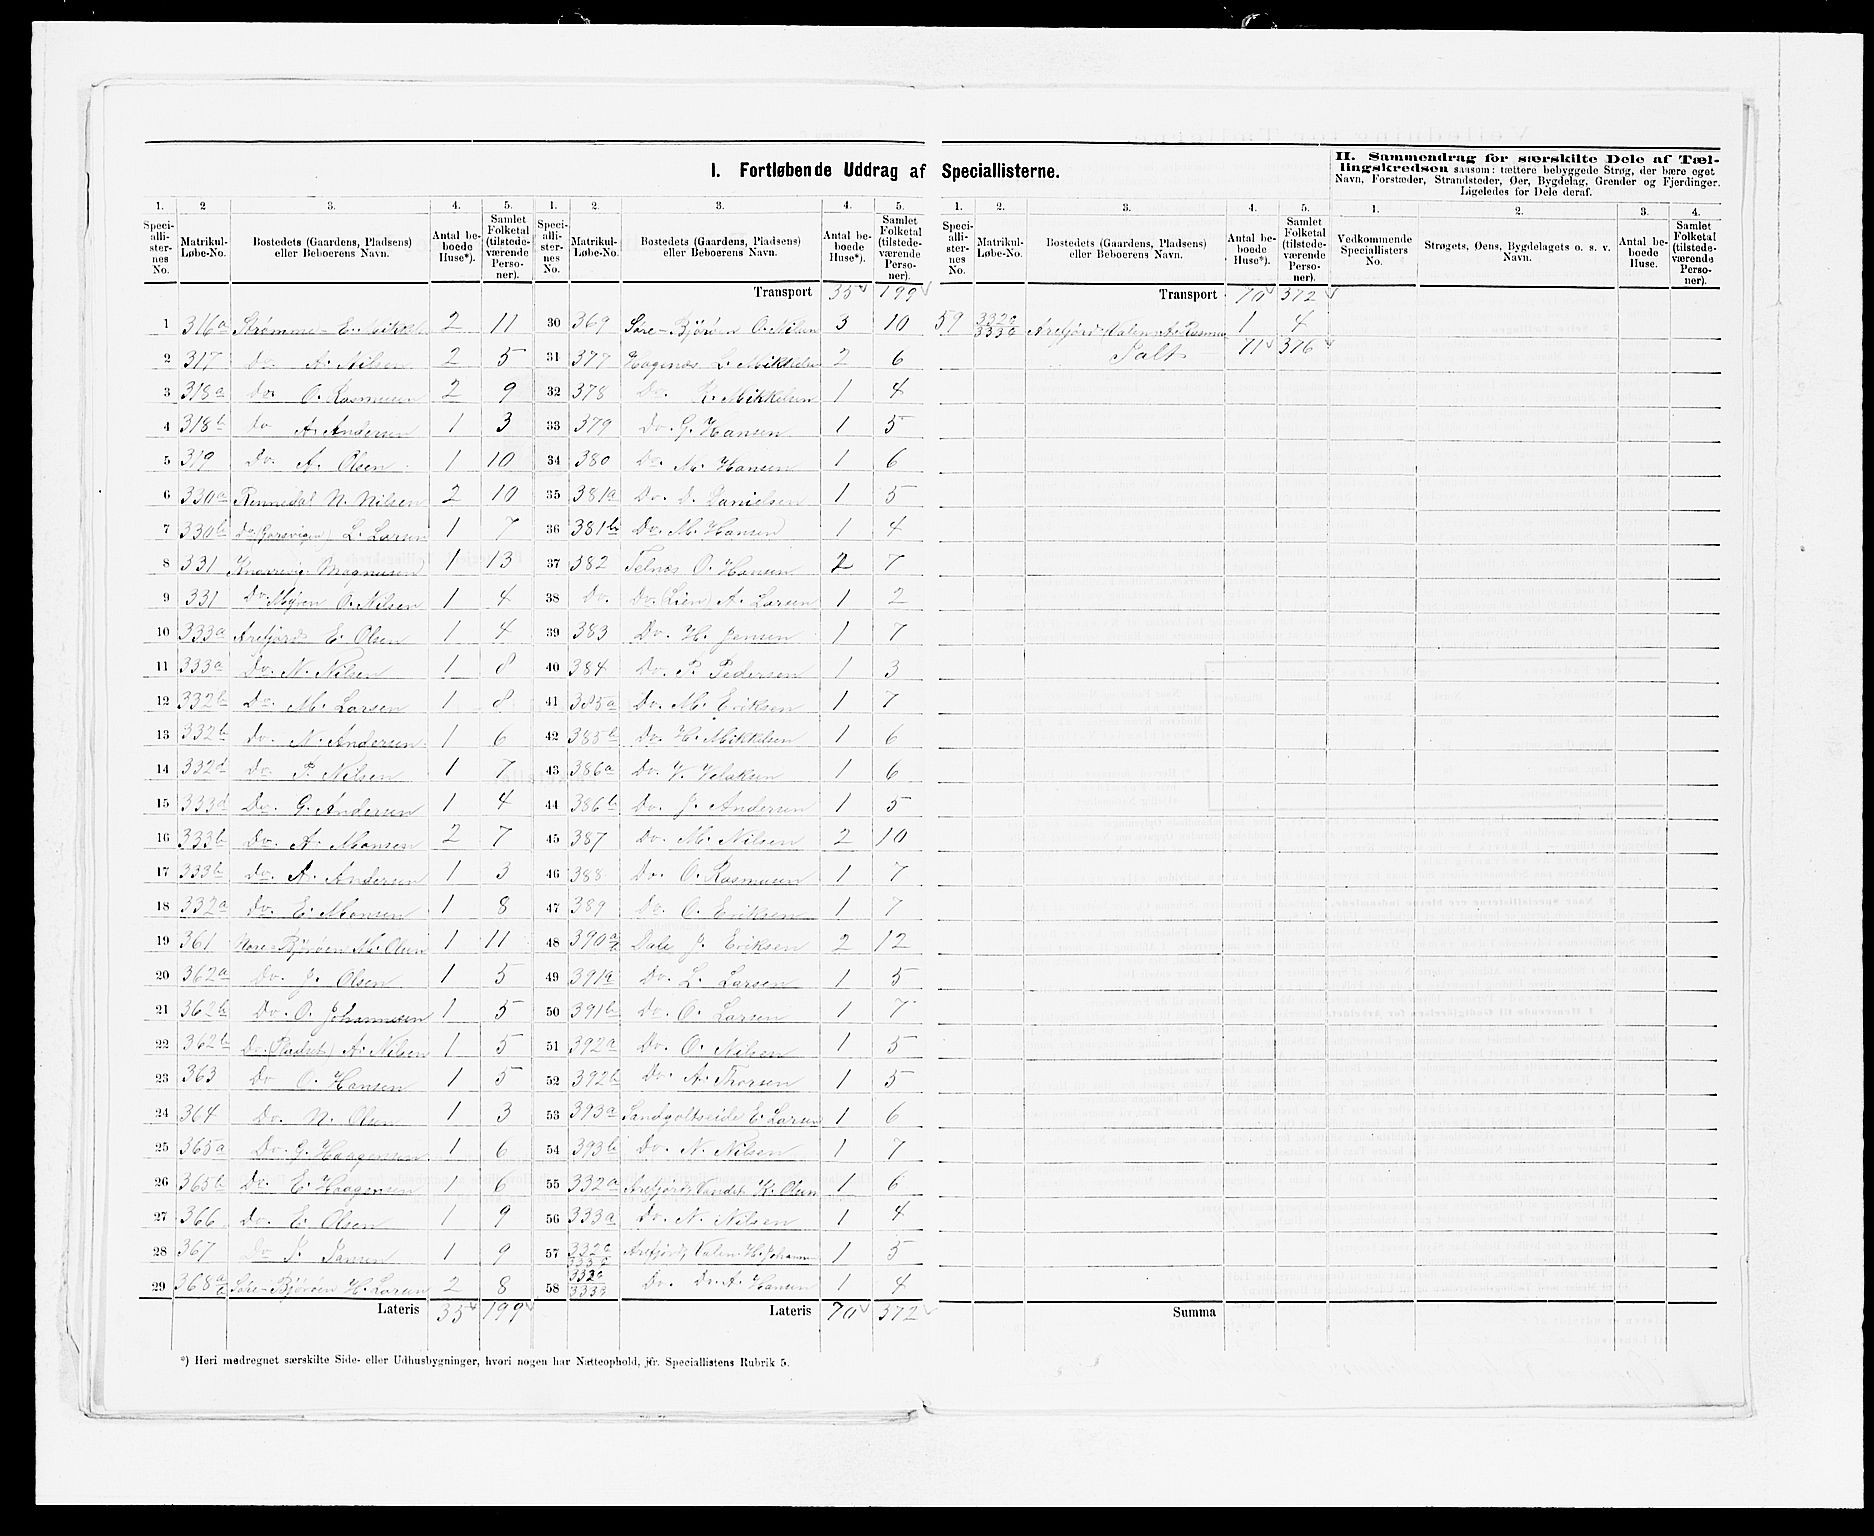 I. Fortløbende Uddrag af Speciallisterne.
II. Sammendrag for særskilte Dele af Tællingskredsen saasom: tættere bebyggede Strøg, der bære eget
Navn, Forstæder, Strandsteder, Øer, Bygdelag, Grender og Fjerdinger.
Ligeledes for Dele deraf.
1. 2 3. 4. 5.
Speciallisternes No. Matrikul-Løbe-No. Bostedets (Gaardens, Pladsens) eller Beboerens Navn. Antal beboede Huse*). Samlet Folketal (tilstedeværende Personer).
1 316a Strømme E. Mikkels 2 11
2 317 Do. A. Nilsen 2 5
3 318a Do. O. Rasmusen 2 9
4 318b Do A. Andersen 1 3
5 319 Do. A. Olsen 1 10
6 330a Rennedal N. Nilsen 2 10
7 330b Do L. Larsen 1 7
8 331 Knarrevig Magnusen 1 13
9 331 Do. Myren O. Nilsen 1 4
10 333a Arefjord E. Olsen 1 4
11 333a Do. N. Nilsen 1 8
12 332b Do. M. Larsen 1 8
13 332b Do. N. Andersen 1 6
14 332d Do. P. Nilsen 1 7
15 333d Do. G. Andersen 1 4
16 333b Do. A. Monsen 2 7
17 333b Do. A. Andersen 1 3
18 332a Do. E. Monsen 1 8
19 361 Nore-Bjørøen M. Olsen 1 11
20 362a Do. J. Olsen 1 5
21 362b Do. O. Johannesen 1 5
22 362b Do. (Pladset) A. Nilsen 1 5
23 363 Do O. Hansen 1 5
24 364 Do. N. Olsen 1 3
25 365a Do. G. Haagensen 1 6
26 365b Do. E. Haagensen 1 6
27 366 Do. E. Olsen 1 9
28 367 Do J. Jansen 1 9
29 368a/b Søre-Bjørøen H. Larsen 2 8
Lateris 35 199
*) Heri medregnet særskilte Side- eller Udhusbygninger, hvori nogen har Natteophold, jfr. Speciallistens Rubrik 5.
1. 2. 3. 4. 5.
Speciallisternes No. Matrikul-Løbe-No. Bostedets (Gaardens, Pladsens) eller Beboerens Navn. Antal beboede Huse*). Samlet Folketal (tilstedeværende Personer).
Transport 35 199
30 369 Søre-Bjørøen O. Nilsen 3 10
31 377 Hagenæs L. Mikkelsen 2 6
32 378 Do. K. Mikkelsen 1 4
33 379 Do. G. Hansen 1 5
34 380 Do. M. Hansen 1 6
35 381a Do. D. Danielsen 1 5
36 381b Do. M. Hansen 1 4
37 382 Telnæs O. Hansen 2 7
38 Do. Do. (Lien) A. Larsen 1 2
39 383 Do. H. Jensen 1 7
40 384 Do. P. Pedersen 1 3
41 385a Do. M. Eriksen 1 7
42 385b Do. H. Mikkelsen 1 6
43 386a Do. 1 6
44 386b Do. J. Andersen 1 5
45 387 Do. M. Nilsen 2 10
46 388 Do. O. Rasmusen 1 7
47 389 Do. O. Eriksen 1 7
48 390a/b Dale J. Eriksen 2 12
49 391a Do. L. Larsen 1 5
50 391b Do. O. Larsen 1 7
51 392a Do. O. Nilsen 1 5
52 392b Do. A. Thorsen 1 5
53 393a Sandgoltseide E. Larsen 1 6
54 393b Do. N. Nilsen 1 7
55 332a Arefjord, Vandet K. Olsen 1 6
56 333a Do. N. Nilsen 1 4
57 332a/333a Arefjord, Valen H. Johannes 1 5
58 332a/333a Do. Do. A. Hansen 1 4
Lateris 70 372
1. 2. 3. 4. 5.
Speciallisternes No. Matrikul-Løbe-No. Bostedets (Gaardens, Pladsens) eller Beboerens Navn. Antal beboede Huse*). Samlet Folketal (tilstedeværende Personer).
Transport 70 372
59 332a/333a Arefjord (Valen A. Rasmu 1 4
Talt 71 376
Summa
1. 2. 3. 4.
Vedkommende Speciallisters No. Strøgets, Øens, Bygdelagets o. s. v. Navn. Antal beboede Huse. Samlet Folketal (tilstedeværende Personer).